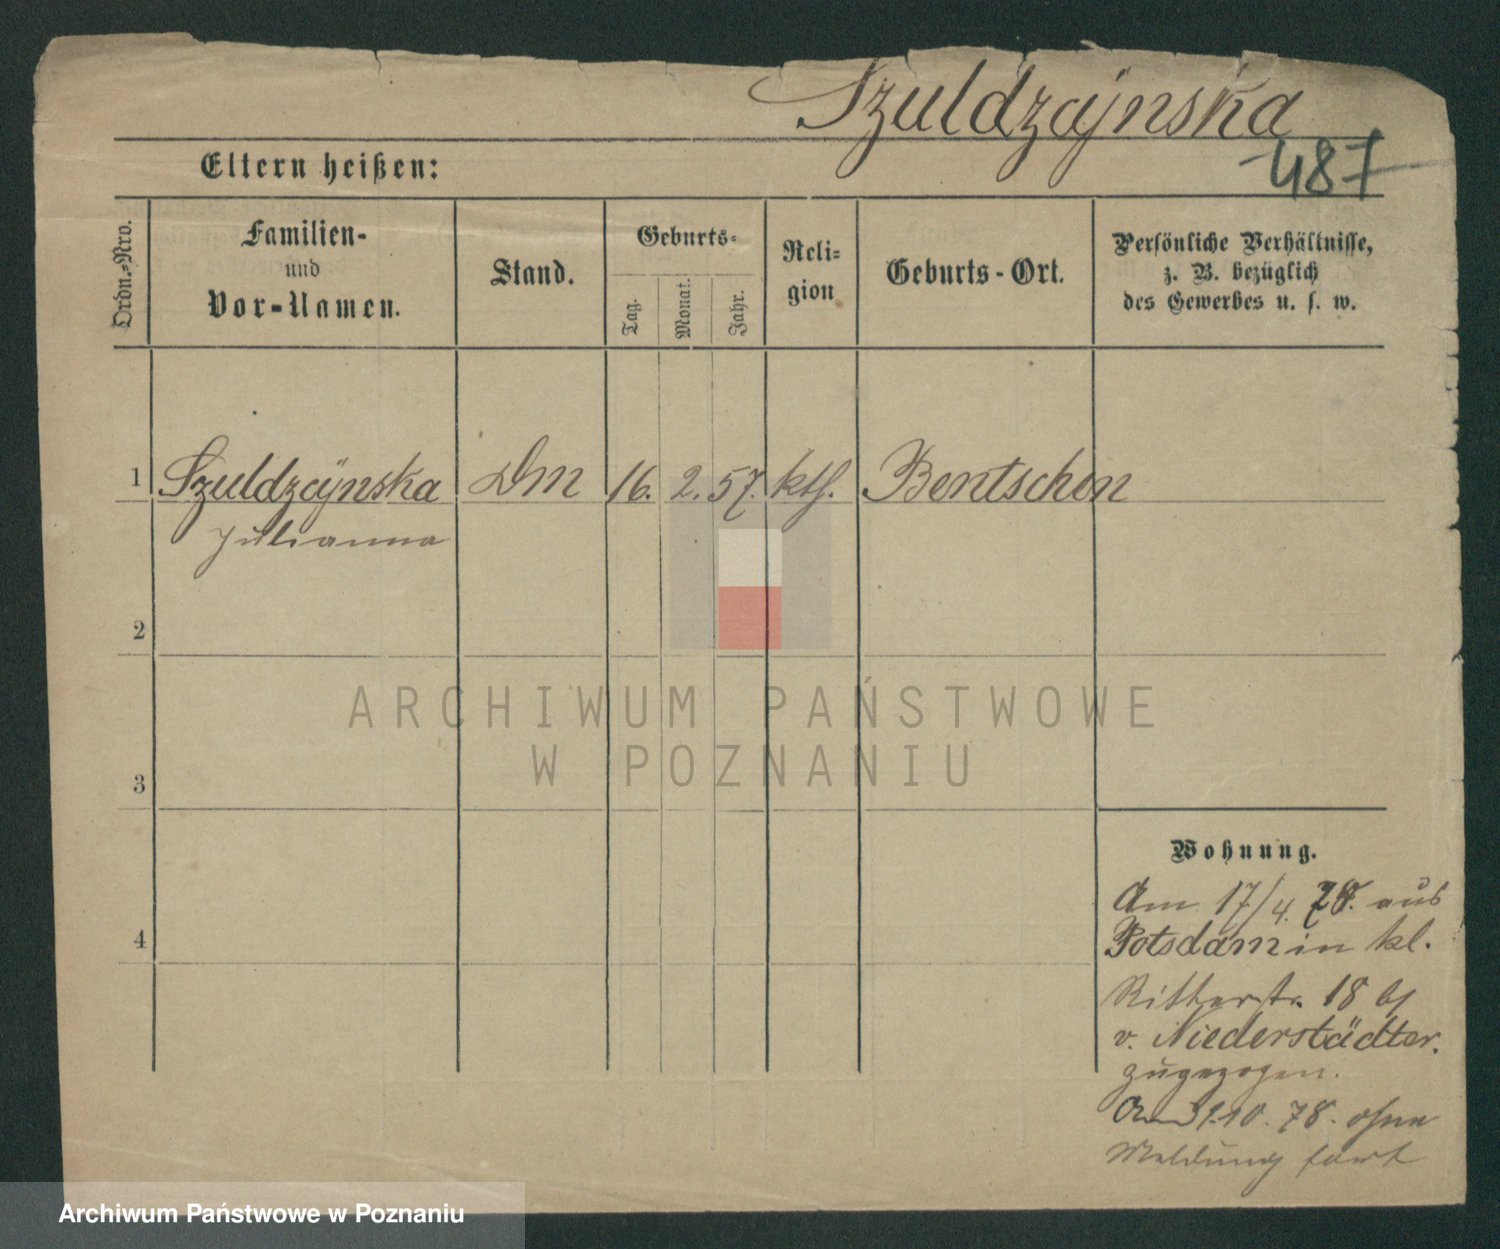 Szuldzÿnska
487
Eltern heißen:
Ordn.-Nro.
Familien-
und
Vor-Namen.
Stand.
Geburts-
Tag.
Monat.
Jahr.
Reli-
gion
Geburts-Ort.
Persönliche Verhältnisse,
z. B. bezüglich
des Gewerbes u. s. w.
1 Szuldzÿnska Dm 16. 2. 57. kth. Bentschen
Julianna
2
ARCHIWUM PAŃSTWOWE
W POZNANIU
3
Wohnung.
Am 17/4. 78. aus
4
Potsdam in kl.
Ritterstr. 18 bei
v. Niederstädter.
zugezogen.
Am 31.10.78. ohne
Meldung fort
Archiwum Państwowe w Poznaniu